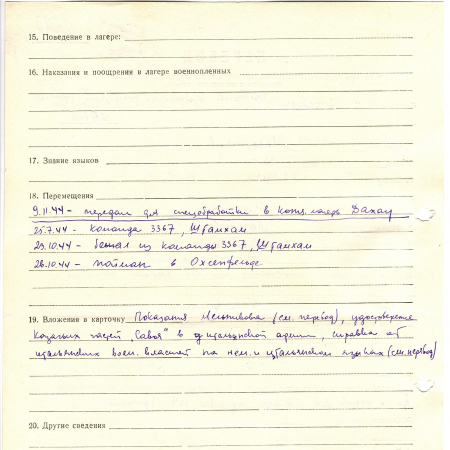 15. Поведение в лагере:
16. Наказания и поощрения в лагере военнопленных
17. Знание языков
18. Перемещения
9.11.44 - передан для спецобработки в конц. лагерь Дахау
25.7.44 - команда 3367, Штамхам
23.10.44 - бежал из команды 3367, Штамхам
26.10.44 - пойман в Охсенфельде
19. Вложения в карточку Показания Мельникова (см. перевод), удостоверение
казачьих частей "Савоя" в итальянской армии, справка от
итальянских воен. властей на нем. и итальянском языках (см. перевод)
20. Другие сведения